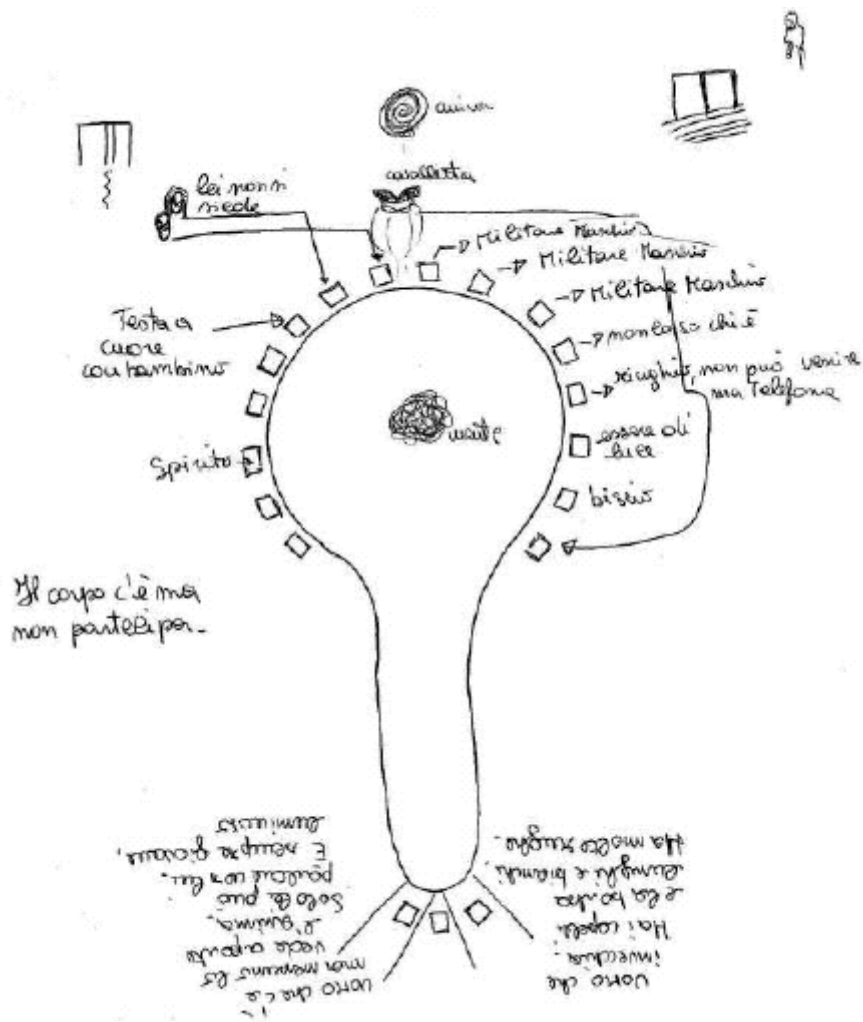 anima
cavalletta
lei non si
siede
Militare Maschio
Militare Maschio
Militare Maschio
non lo so chi è
Testa a
cuore
con bambino
, non può venire
ma Telefona
mente
essere di
luce
Spirito
Il corpo c'è ma
non partecipa.
Uomo che c'è
ma nessuno lo
vede a parte
l'anima.
Solo lei può
parlare con lui.
È sempre giovane,
luminoso
Uomo che
invecchia.
Ha i capelli
e la barba
lunghi e bianchi.
Ha molte rughe.